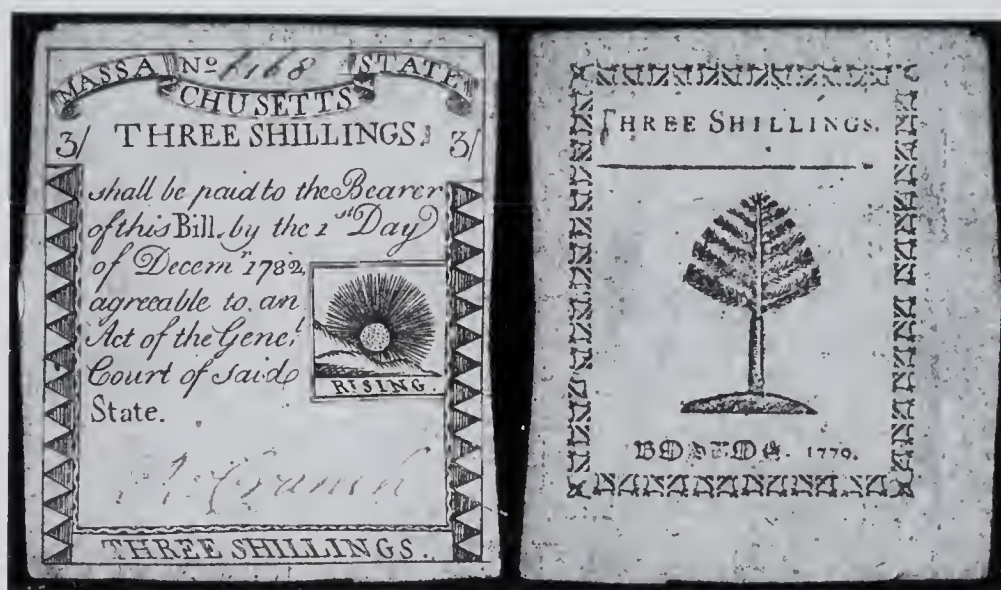 MASSA Nº STATE
CHUSETTS
3/ THREE SHILLINGS. 3/
shall be paid to the Bearer
of this Bill, by the 1st Day
of Decemr 1782,
agreeable to, an
Act of the Genel
Court of said
State.
RISING.
THREE SHILLINGS.
THREE SHILLINGS.
BOSTON. 1779.